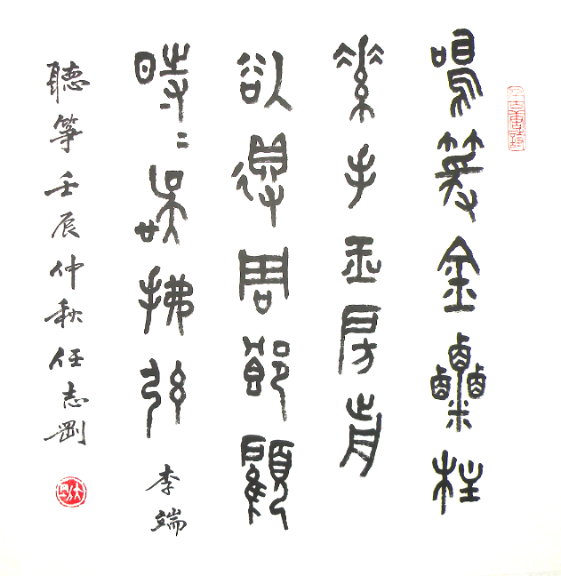 鳴箏金粟柱
素手玉房前
欲得周郎顧
時〻誤拂弦 李端
聽箏 壬辰仲秋 任志剛